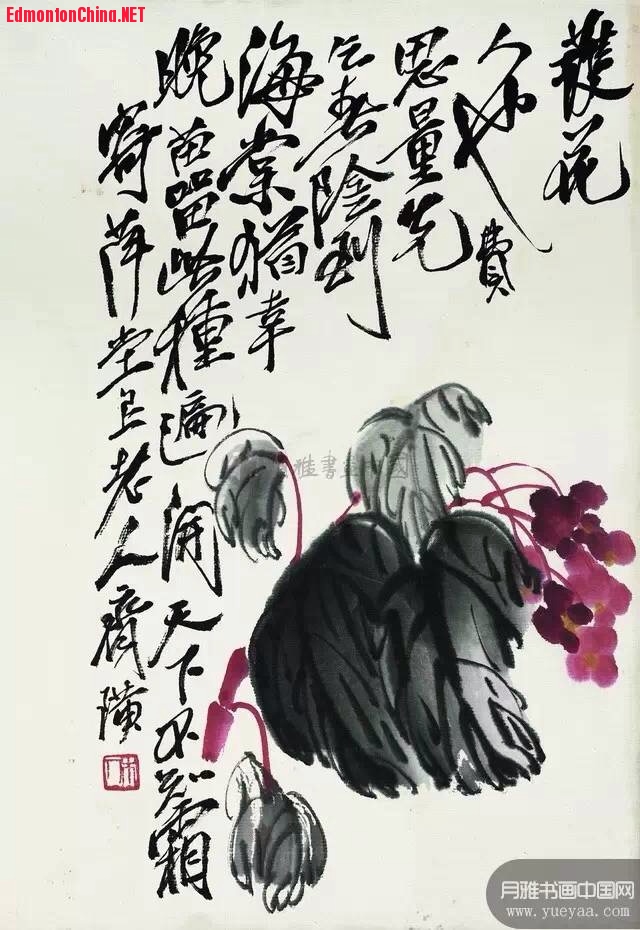 EdmontonChina.NET
護花
人也費
思量先
乞春陰到
海棠猶幸
晚苗留此種遍開天下不知霜
寄萍堂上老人齊璜
月雅书画中国网
www.yueyaa.com